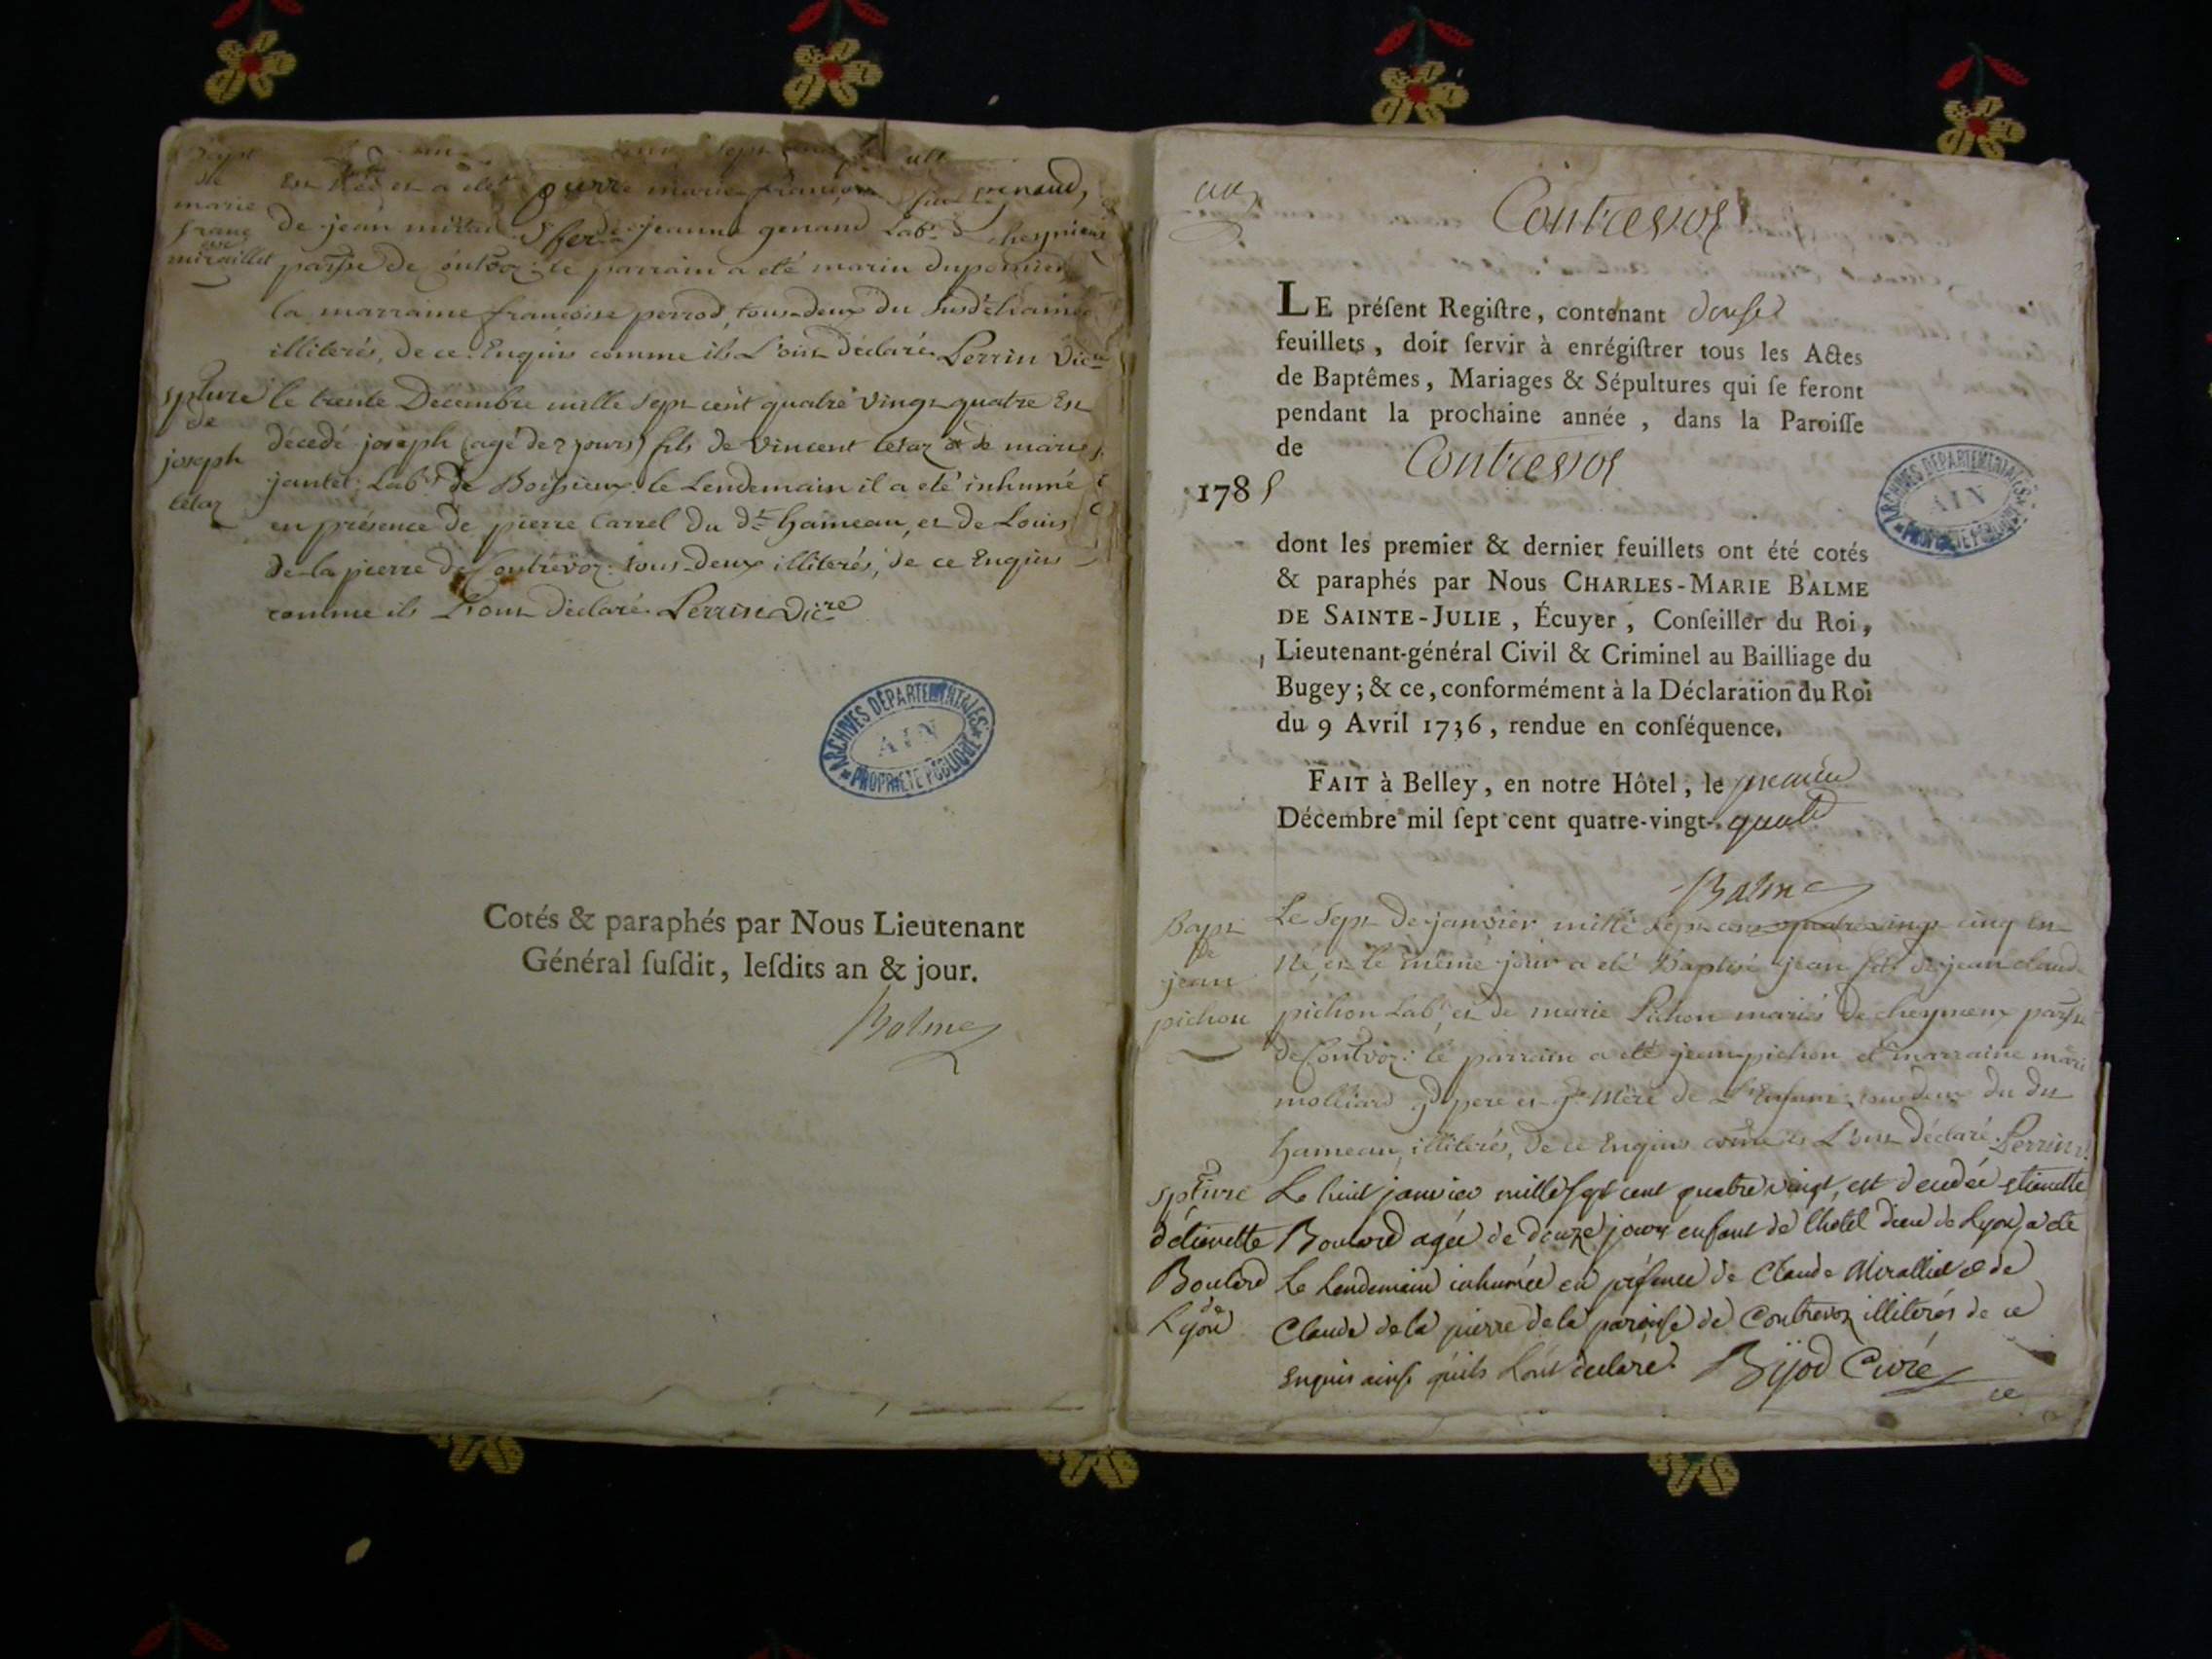 Bapt
de
marie
franç
oise
miraillet
de jean
de jeanne genand Lab.r
le parrain a eté marin duponnier
la marraine françoise perrod, tous deux du susd.t hameau
illiterés, de ce Enquis comme ils L'ont déclaré. Perrin Vic.re
spture
de
joseph
tetaz
le trente Decembre mille sept cent quatre vingt quatre Est
décedé joseph (agé de 2 jours) fils de Vincent tetaz et de marie
jantet Lab.rs de Boissieux. le Lendemain il a eté inhumé
en présence de pierre Carrel du d.t hameau, et de Louis
de la pierre de Contrevoz. tous deux illiterés, de ce Enquis
comme ils L'ont déclaré. Perrin Vic.re
ARCHIVES DÉPARTEMENTALES
AIN
PROPRIÉTÉ PUBLIQUE
Cotés & paraphés par Nous Lieutenant
Général ſuſdit, leſdits an & jour.
Balme
un
Contrevos
LE préſent Regiſtre, contenant douse
feuillets, doit ſervir à enrégiſtrer tous les Actes
de Baptêmes, Mariages & Sépultures qui ſe feront
pendant la prochaine année, dans la Paroiſſe
de Contrevos
1785
ARCHIVES DÉPARTEMENTALES
AIN
PROPRIÉTÉ PUBLIQUE
dont les premier & dernier feuillets ont été cotés
& paraphés par Nous CHARLES-MARIE BALME
DE SAINTE-JULIE, Écuyer, Conſeiller du Roi,
Lieutenant-général Civil & Criminel au Bailliage du
Bugey; & ce, conformément à la Déclaration du Roi
du 9 Avril 1736, rendue en conſéquence.
FAIT à Belley, en notre Hôtel, le premier
Décembre mil ſept cent quatre-vingt-quatre
Balme
Bapt
de
jean
pichon
Le Sept de janvier mille sept cent quatre vingt cinq est
né, et le même jour a eté Baptisé jean fils de jean claude
pichon Lab.r et de marie Pichon mariés de cheymeux parsse
de Contvoz: le parrain a eté jean pichon et marraine marie
molliard g.d pere et g.de Mere de L'Enfant, tous deux du dit
hameau, illiterés, de ce Enquis comme ils L'ont déclaré. Perrin v.
spture
d'étienette
Boulard
de
Lyon
Le huit janvier mille sept cent quatre vingt, est decedée etienette
Boulard agée de douze jours enfant de l'hotel dieu de Lyon, a ete
Le Lendemain inhumée en présence de Claude Miralliet et de
Claude de la pierre de la paroisse de Contrevoz illiterés de ce
enquis ainsi qu'ils L'ont declaré. Bijod Curé
ce